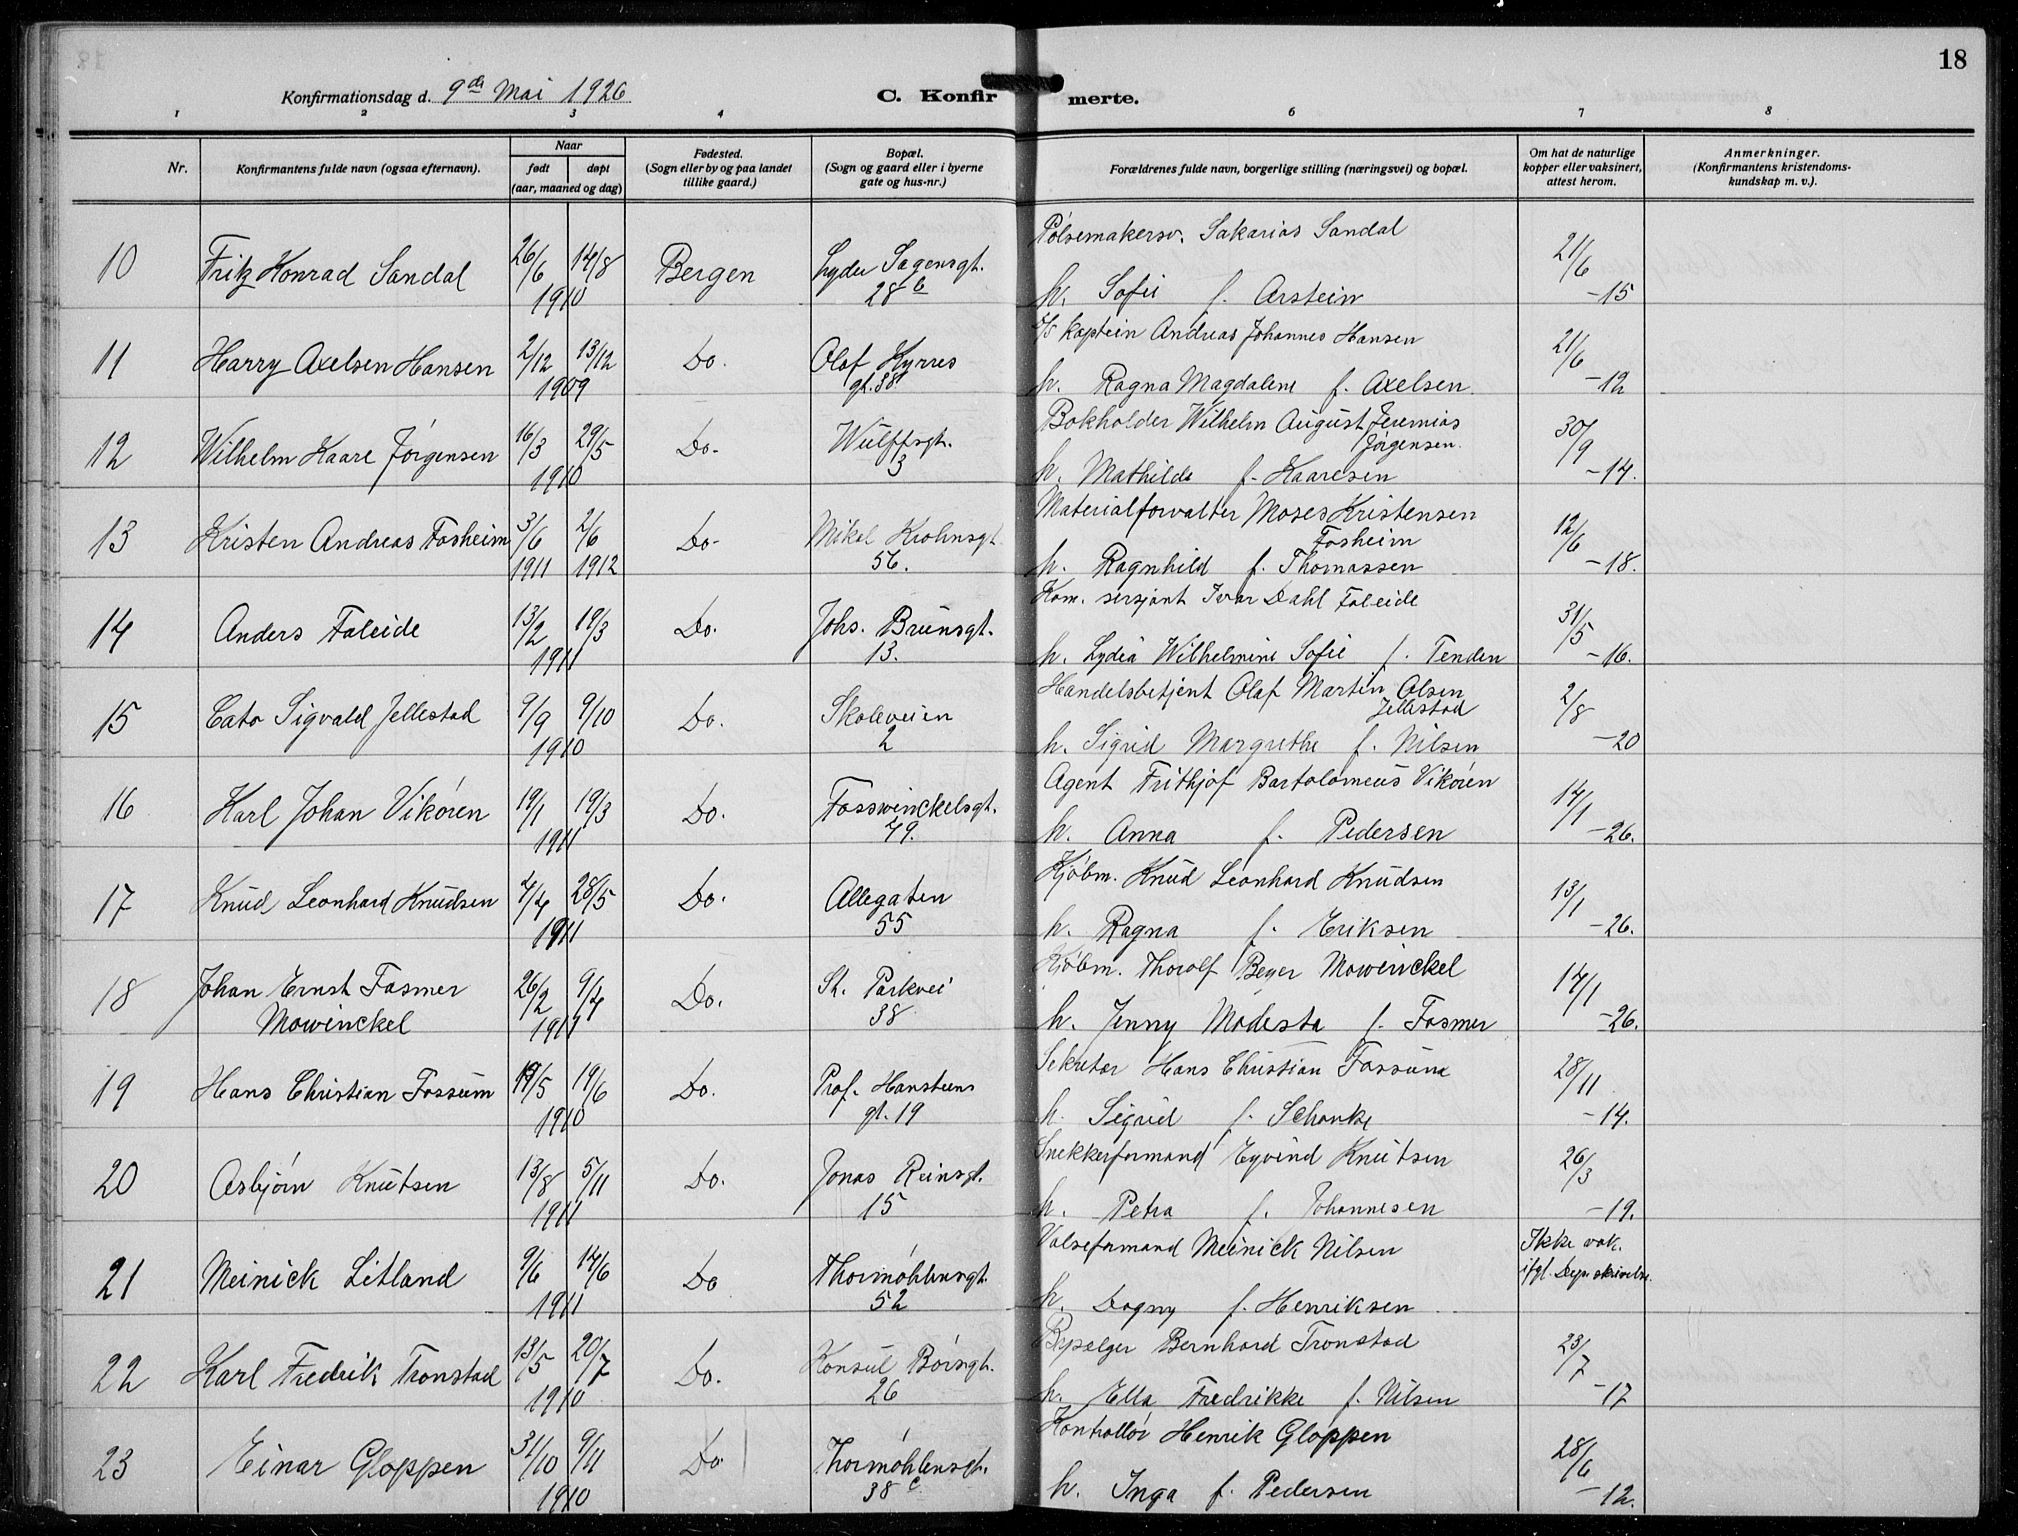 18
Konfirmationsdag d. 9de Mai 1926
C. Konfirmerte.
1 2 3 4 6 7 8
Nr.
Konfirmantens fulde navn (ogsaa efternavn).
Naar
født døpt
(aar, maaned og dag)
Fødested.
(Sogn eller by og paa landet
tillike gaard.)
Bopæl.
(Sogn og gaard eller i byerne
gate og hus-nr.)
Forældrenes fulde navn, borgerlige stilling (næringsvei) og bopæl.
Om hat de naturlige
kopper eller vaksinert,
attest herom.
Anmerkninger.
(Konfirmantens kristendoms-
kundskap m. v.).
10 Fritz Konrad Sandal 26/6 14/8 1910 Bergen Lyder Sagensgt. 28b
Pölsemakersv. Sakarias Sandal
h. Sofie f. Arstein 21/6 -15
11 Harry Axelsen Hansen 2/12 13/12 1909 Do. Olaf Kyrres gt. 38
D/S kaptein Andreas Johannes Hansen
h. Ragna Magdalene f. Axelsen. 21/6 -12
12 Wilhelm Kaare Jörgensen 16/3 29/5 1910 Do- Wulffsgt. 3
Bokholder Wilhelm August Jeremias
Jörgensen.
h. Mathilde f. Kaaresen 30/9 -14.
13 Kristen Andreas Fosheim 3/6 1911 2/6 1912 Do- Mikal Krohnsgt. 56.
Materialforvalter Moses Kristensen
Fosheim
h. Ragnhild f. Thomassen 12/6 -18.
14 Anders Faleide 13/2 19/3 1911 Do. Johs. Brunsgt. 13.
Kom. sersjant Ivar Dahl Faleide
h. Lydia Wilhelmine Sofie f. Tenden 31/5 -16.
15 Cato Sigvald Jellestad 9/9 9/10 1910 Do. Skoleveien 2
Handelsbetjent Olaf Martin Olsen
Jellestad
h. Sigrid Margrethe f. Nilsen 2/8 -20
16 Karl Johan Vikören 19/1 19/3 1911 Do. Fosswinckelsgt. 49.
Agent Frithjof Bartolomeus Vikören
h. Anna f. Pedersen 14/1 -26.
17 Knud Leonhard Knudsen 4/4 28/5 1911 Do. Allegaten 55
Kjöbm. Knud Leonhard Knudsen
h. Ragna f. Eriksen 13/1 -26.
18 Johan Ernst Fasmer
Mowinckel 26/2 9/4 1911 Do. St. Parkvei 38
Kjöbm. Thorolf Beyer Mowinckel
h. Jenny Modesta f. Fasmer 14/1 -26.
19 Hans Christian Fossum 19/5 19/6 1910 Do. Prof. Hansteens gt. 19
Sekretær Hans Christian Fossum
h. Sigrid f. Schanke 28/11 -14.
20 Asbjörn Knutsen 13/8 5/11 1911 Do. Jonas Reinsgt. 15
Snekkerformand Eyvind Knutsen
h. Petra f. Johannesen 26/3 -19.
21 Meinick Litland 9/6 14/6 1911 Do Thormöhlensgt. 52
Valseformand Meinick Nilsen
h. Dagny f. Henriksen Ikke vak.
ifgl. Dep. skrivelse.
22 Karl Fredrik Tronstad 13/5 20/7 1910 Do. Konsul Börsgt. 26
Bypælger Bernhard Tronstad
h. Ella Fredrikke f. Nilsen 23/7 -17
23 Einar Gloppen 31/10 9/11 1910 Do Thormöhlensgt. 38c
Kontrollör Henrik Gloppen
h. Inga f. Pedersen 28/6 -12.